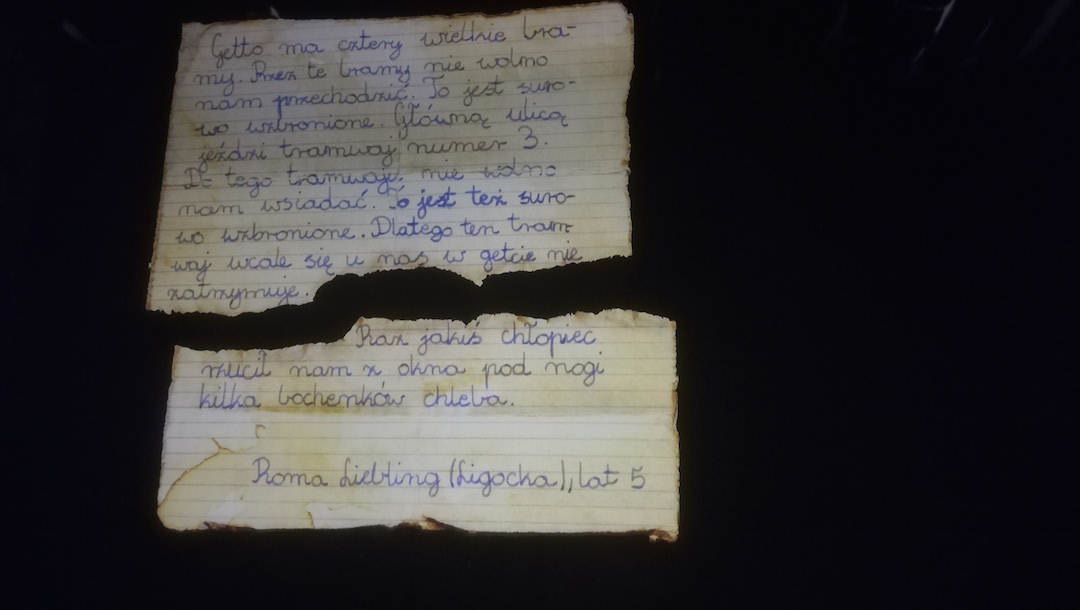 Getto ma cztery wielkie bra-
my. Przez te bramy nie wolno
nam przechodzić. To jest suro-
wo wzbronione. Główną ulicą
jeździ tramwaj numer 3.
Do tego tramwaju nie wolno
nam wsiadać. To jest też suro-
wo wzbronione. Dlatego ten tram-
waj wcale się u nas w getcie nie
zatrzymuje.
Raz jakiś chłopiec
rzucił nam z okna pod nogi
kilka bochenków chleba.
Roma Liebling (Ligocka), lat 5